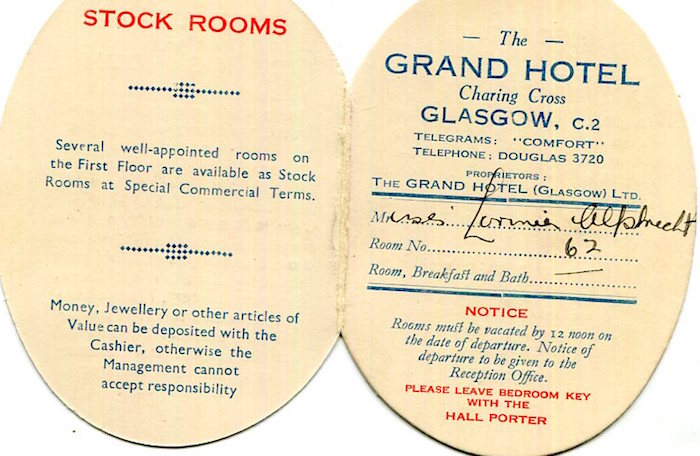 STOCK ROOMS
Several well-appointed rooms on
the First Floor are available as Stock
Rooms at Special Commercial Terms.
Money, Jewellery or other articles of
Value can be deposited with the
Cashier, otherwise the
Management cannot
accept responsibility
— The —
GRAND HOTEL
Charing Cross
GLASGOW, C.2
TELEGRAMS: "COMFORT"
TELEPHONE: DOUGLAS 3720
PROPRIETORS:
THE GRAND HOTEL (GLASGOW) LTD.
M
Room No. 62
Room, Breakfast and Bath —
NOTICE
Rooms must be vacated by 12 noon on
the date of departure. Notice of
departure to be given to the
Reception Office.
PLEASE LEAVE BEDROOM KEY
WITH THE
HALL PORTER